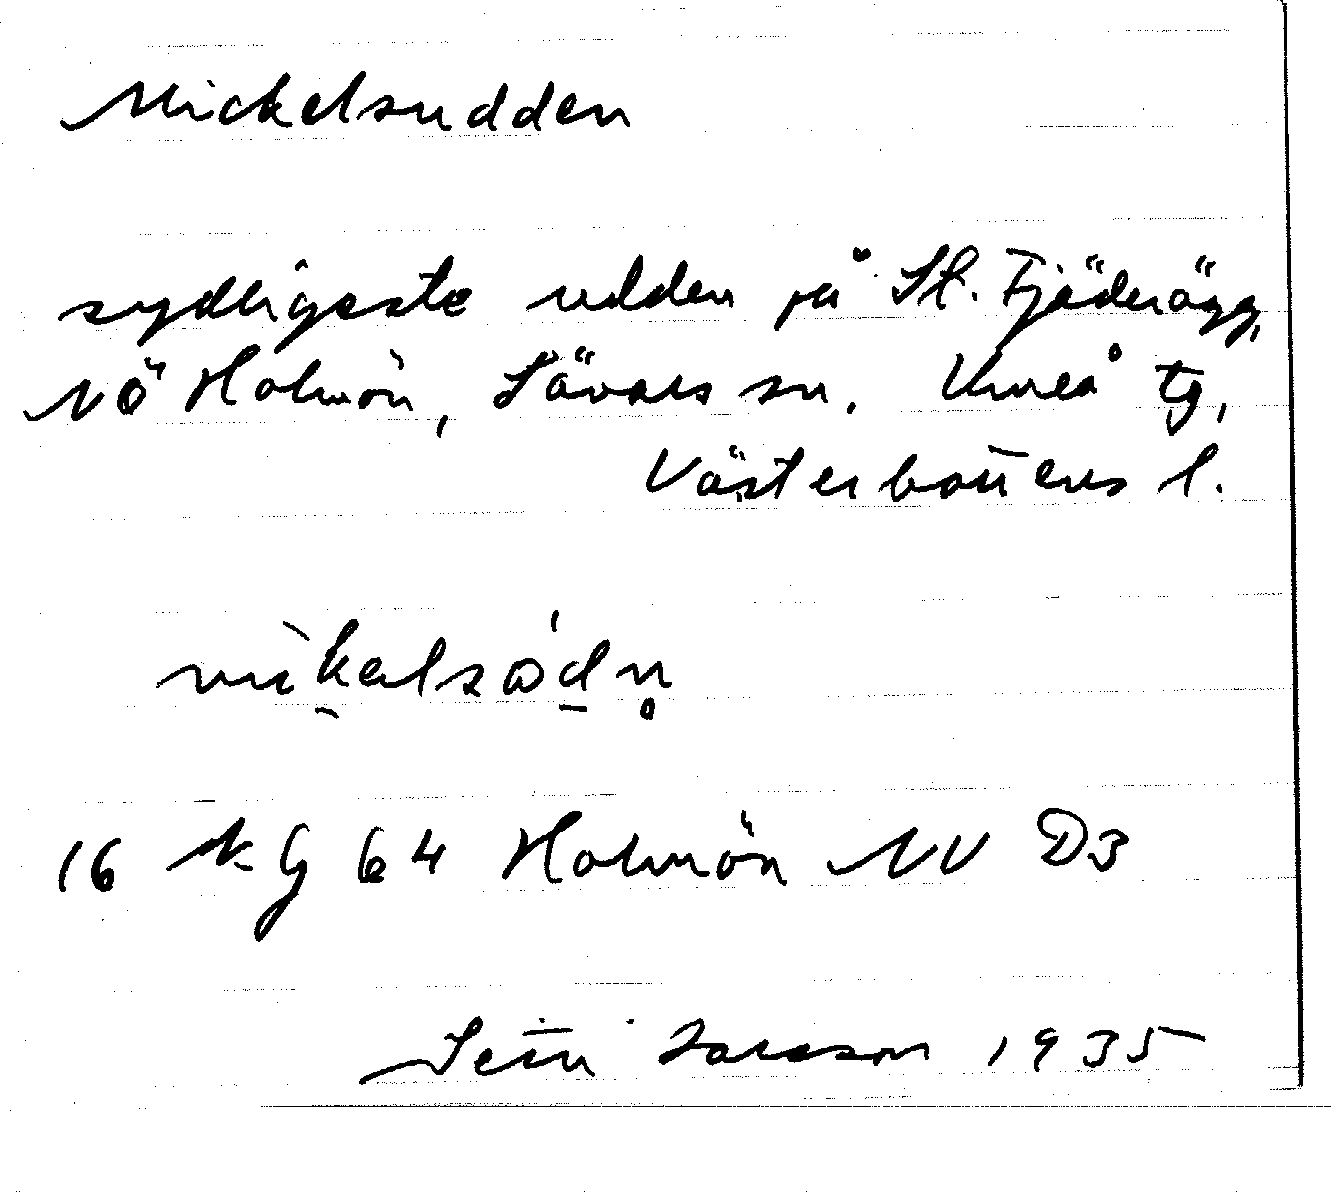 Mickelsudden
sydligeste udden på St. Fjäderägg,
NÖ Holmön, Sävars sn. Umeå tg,
Västerbottens l.
16 64 Holmön NV D3
Larsson 1935